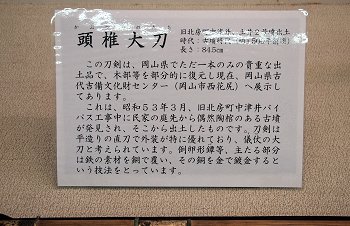 頭椎大刀
長さ：84.5cm
この刀剣は、岡山県でただ一本のみの貴重な出
土品で、木部等を部分的に復元し現在、岡山県古
代吉備文化財センター（岡山市西花尻）へ展示し
てあります。
これは、昭和５３年３月、旧北房町中津井バイ
パス工事中に民家の庭先から偶然陶棺のある古墳
が発見され、そこから出土したものです。刀剣は
平造りの直刀で外装が特に優れており、儀仗の大
刀と考えられています。倒卵形鐔等、主たる部分
は鉄の素材を銅で覆い、その銅を金で鍍金すると
いう技法をとっています。